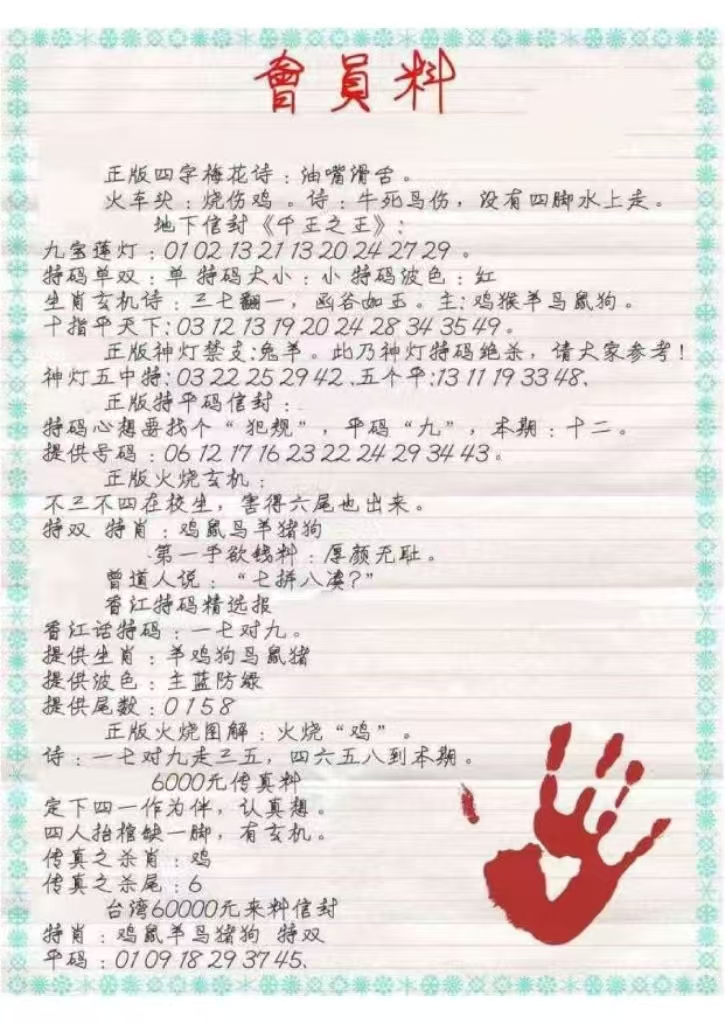 會員料
正版四字梅花诗：油嘴滑舌。
火车块：烧伤鸡。诗：牛死马伤，没有四脚水上走。
地下信封《千王之王》：
九宝莲灯：01 02 13 21 13 20 24 27 29 。
特码单双：单 特码大小：小 特码波色：红
生肖玄机诗：三七翻一，函谷如玉。主: 鸡猴羊马鼠狗。
十指平天下: 03 12 13 19 20 24 28 34 35 49。
正版神灯禁支:兔羊。此乃神灯特码绝杀，请大家参考！
神灯五中特: 03 22 25 29 42 、五个平:13 11 19 33 48、
正版特平码信封：
特码心想要找个“犯规”，平码“九”，本期：十二。
提供号码：06 12 17 16 23 22 24 29 34 43。
正版火烧玄机：
不三不四在校生，害得六尾也出来。
特双 特肖：鸡鼠马羊猪狗
第一手欲钱料：厚颜无耻。
曾道人说：“七拼八凑？”
香江特码精选报
香江话特码：一七对九。
提供生肖：羊鸡狗马鼠猪
提供波色：主蓝防绿
提供尾数：0 1 5 8
正版火烧图解：火烧“鸡”。
诗：一七对九走三五，四六五八到本期。
6000元传真料
定下四一作为伴，认真想。
四人抬棺缺一脚，有玄机。
传真之杀肖：鸡
传真之杀尾：6
台湾60000元来料信封
特肖：鸡鼠羊马猪狗 特双
平码：01 09 18 29 37 45、